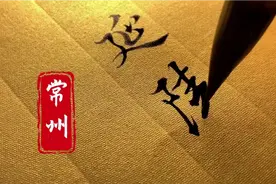 延陵
常州